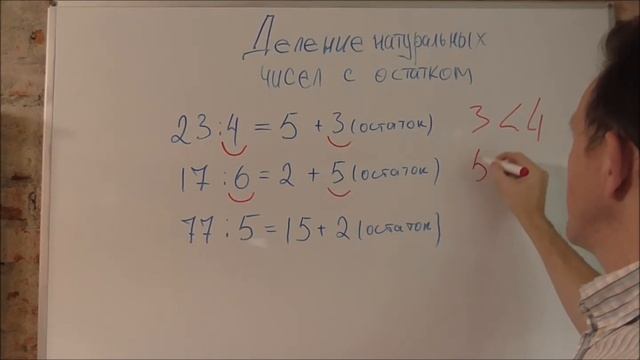 Деление натуральных
чисел с остатком
23 : 4 = 5 + 3 (остаток) 3 < 4
17 : 6 = 2 + 5 (остаток) 5
77 : 5 = 15 + 2 (остаток)